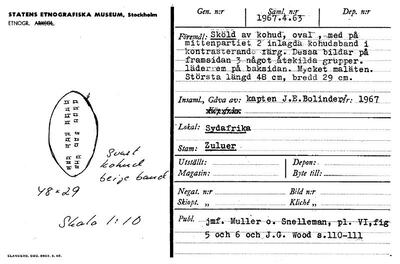 STATENS ETNOGRAFISKA MUSEUM, Stockholm
ETNOGR. ARKOL.
svart
kohud
beige band
48 × 29
Skala 1:10
Gen. nr
Saml. nr
Dep. nr
1967.4.63
Föremål: Sköld av kohud, oval, med på
mittenpartiet 2 inlagda kohudsband i
kontrasterande färg. Dessa bildar på
framsidan 3 något åtskilda grupper.
läderrem på baksidan. Mycket maläten.
Största längd 48 cm, bredd 29 cm.
Insaml., Gåva av: kapten J.E.Bolinder År: 1967
Lokal: Sydafrika
Stam: Zuluer
Utställt:
Depon:
Magasin:
Byte till:
Negat. nr
Bild nr
Skiopt. »
Kliché »
Publ. jmf. Muller o. Snelleman, pl. VI,fig
5 och 6 och J.G. Wood s.110-111